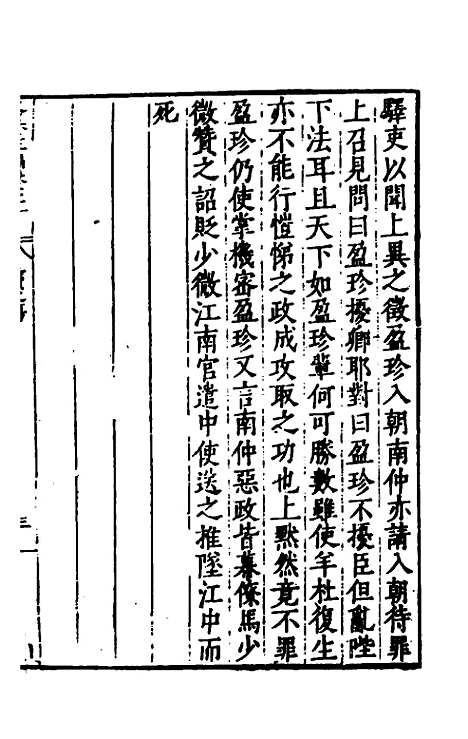 驛吏以聞上異之徵盈珍入朝南仲亦請入朝待罪
上召見問曰盈珍擾卿耶對曰盈珍不擾臣但亂陛
下法耳且天下如盈珍輩何可勝數雖使羊杜復生
亦不能行愷悌之政成攻取之功也上黙然竟不罪
盈珍仍使掌機密盈珍又言南仲惡政皆幕僚馬少
微贊之詔貶少微江南官遣中使送之推墜江中而
死